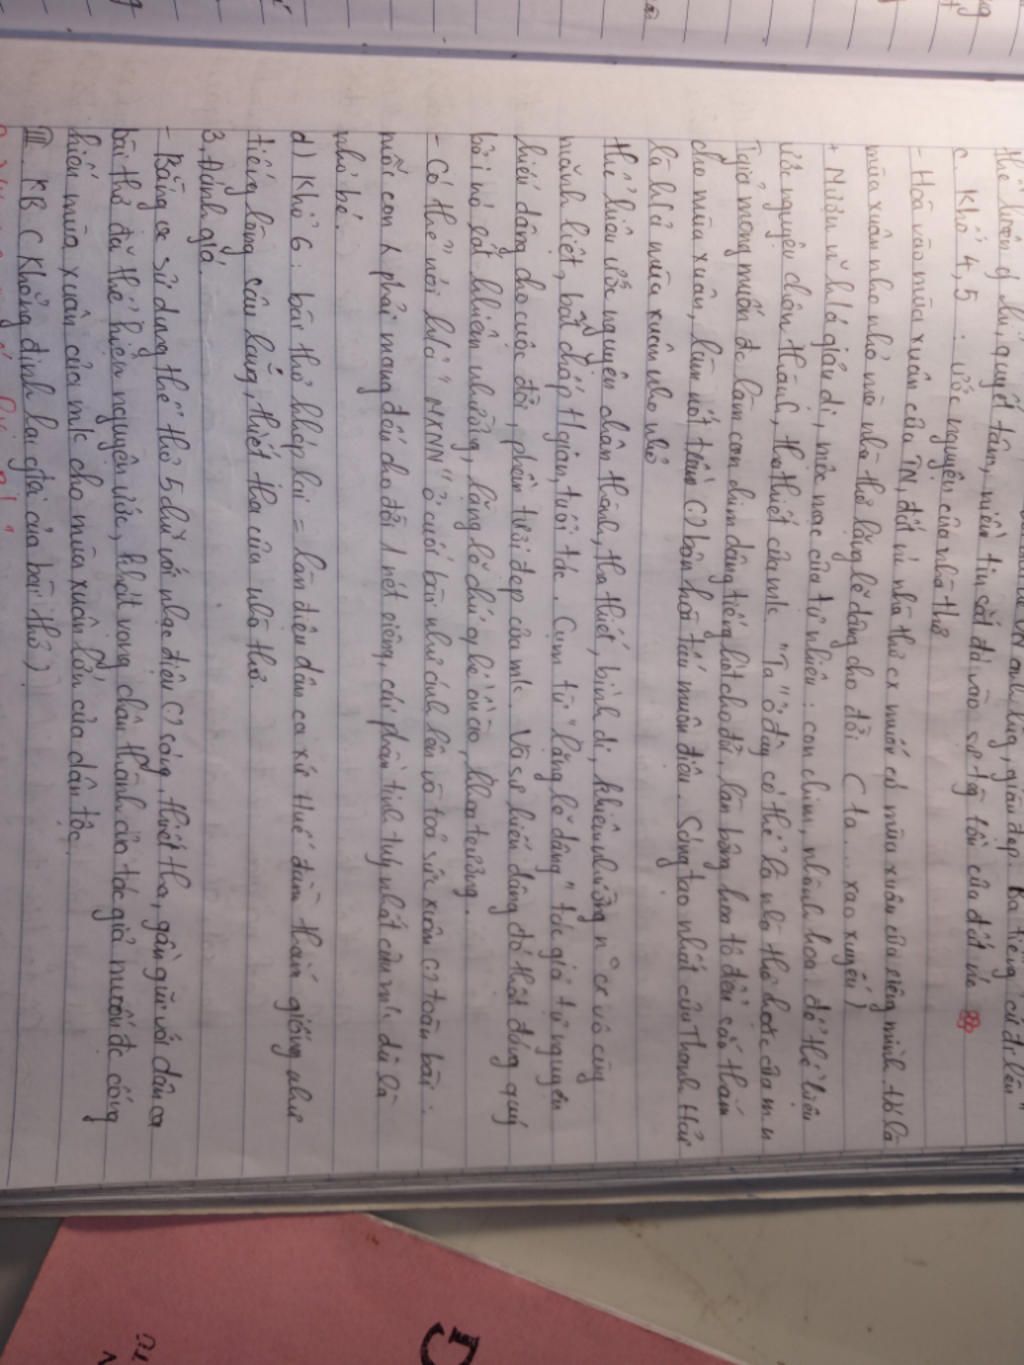 thể hiện ý chí, quyết tâm, niềm tin sắt đá vào sự tồn của đất nc
c. Khổ 4, 5 : ước nguyện của nhà thơ
- Hoà vào mùa xuân của TN, đất nc nhà thơ cx muốn có mùa xuân của riêng mình. đó là
mùa xuân nho nhỏ mà nhà thơ lặng lẽ dâng cho đời ( ta ... xao xuyến )
+ Nhiều h/ả giản dị, mộc mạc của tự nhiên : con chim, nhành hoa để thể hiện
ước nguyện chân thành, tha thiết của mk "Ta" ở đây có thể là nhà thơ hoặc của m.n
T/giả mong muốn đc làm con chim dâng tiếng hót cho đời, làm bông hoa tô điểm sắc thắm
cho mùa xuân, làm nốt trầm bản hoà tấu muôn điệu. Sáng tạo nhất của Thanh Hải
là h/ả mùa xuân nho nhỏ
thể hiện ước nguyện chân thành, tha thiết, bình dị, khiêm nhường n° cx vô cùng
mãnh liệt, bất chấp t/gian, tuổi tác. Cụm từ "lặng lẽ dâng" tác giả tự nguyện
hiến dâng cho cuộc đời, phần tươi đẹp của mk. Và sự hiến dâng đó thật đáng quý
bởi nó rất khiêm nhường, lặng lẽ chứ ko ồn ào, khoa trương.
- Có thể nói h/ả "MXNN" ở cuối bài như ánh lên và toả sức xuân toàn bài :
mỗi con phải mang đến cho đời 1 nét riêng, cái phần tinh tuý nhất của mk dù là
nhỏ bé.
d) Khổ 6 : bài thơ khép lại = làn điệu dân ca xứ Huế đằm thắm giống như
tiếng lòng sâu lắng, thiết tha của nhà thơ.
3. Đánh giá.
- Bằng cx sử dụng thể thơ 5 chữ với nhạc điệu sáng, thiết tha, gần gũi với dân ca
bài thơ đã thể hiện nguyện ước, khát vọng chân thành của tác giả muốn đc cống
hiến mùa xuân của mk cho mùa xuân lớn của dân tộc.
III. KB ( Khẳng định lại giá của bài thơ )